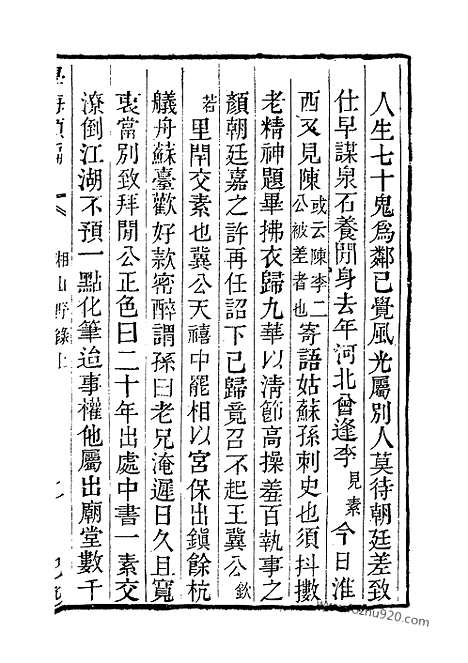 人生七十鬼為鄰已覺風光屬別人莫待朝廷差致
仕早謀泉石養閒身去年河北曾逢李見素今日淮
西又見陳或云陳李二公被差者也寄語姑蘇孫刺史也須抖擻
老精神題畢拂衣歸九華以清節高操羞百執事之
顏朝廷嘉之許再任詔下已歸竟召不起王冀公欽
若里閈交素也冀公天禧中罷相以宮保出鎮餘杭
艤舟蘇臺歡好款密醉謂孫曰老兄淹遲日久且寬
衷當別致拜聞公正色曰二十年出處中書一素交
潦倒江湖不預一點化筆迨事權他屬出廟堂數千
湘山野錄上